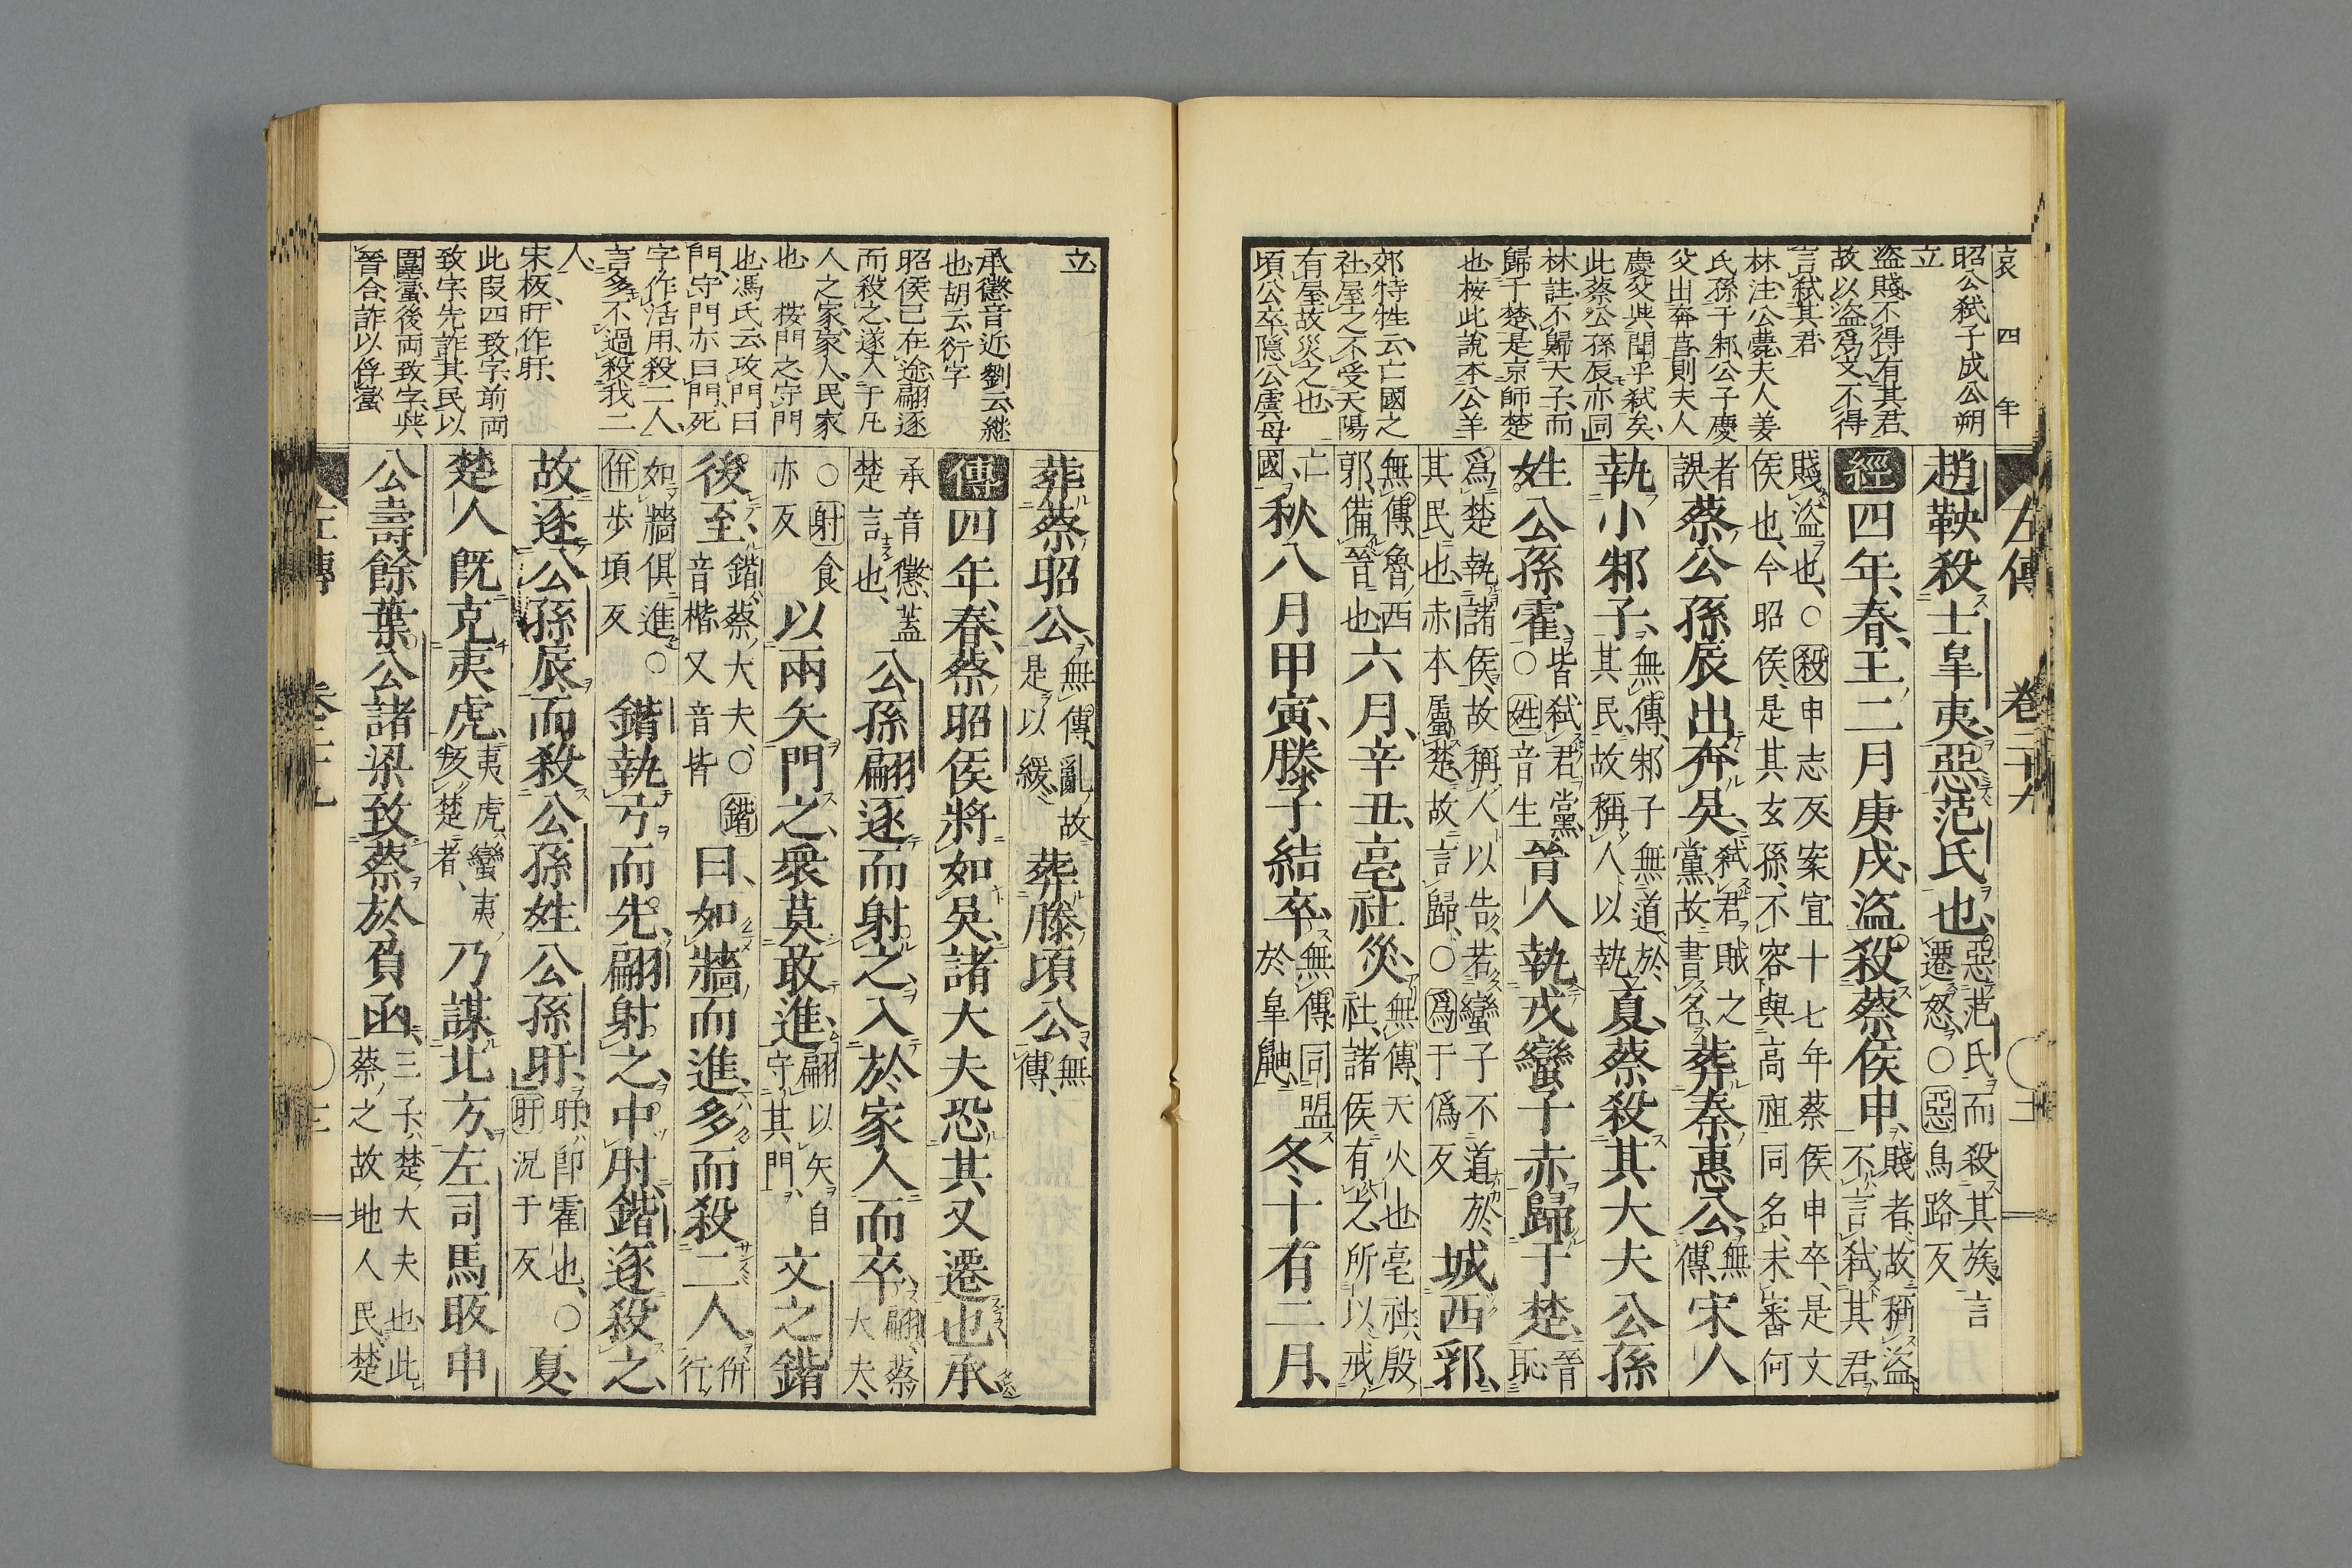 哀 四 年
左傳 卷二十九
昭公弒子成公朔
立
盜賤不得有其君
故以盜爲文不得
言弒其君
林注公薨夫人姜
氏孫于邾公子慶
父出奔莒則夫人
慶父與聞乎弒矣
此蔡公孫辰亦同
林註不歸天子而
歸于楚是京師楚
也桉此說本公羊
郊特牲云亡國之
社屋之不受天陽
有屋故災之也
頃公卒隱公虞母
趙鞅殺士皐夷惡范氏也惡范氏而殺其族言
遷怒○惡烏路反
經四年春王二月庚戌盜殺蔡侯申賤者故稱盜
不言弒其君
賤盜也○殺申志反案宣十七年蔡侯申卒是文
侯也今昭侯是其玄孫不容與高祖同名未審何
者
誤蔡公孫辰出奔吳弒君賊之
黨故書名葬秦惠公無
傳宋人
執小邾子無傳邾子無道於
其民故稱人以執夏蔡殺其大夫公孫
姓公孫霍皆弒君黨
○姓音生晉人執戎蠻子赤歸于楚晉
恥
爲楚執諸侯故稱人以告若蠻子不道於
其民也赤本屬楚故言歸○爲于僞反城西郛
無傳魯西
郭備晉也六月辛丑亳社災無傳天火也亳社殷
社諸侯有之所以戒
亡
國秋八月甲寅滕子結卒無傳同盟
於皐鼬冬十有二月
立
承懲音近劉云繼
也胡云衍字
昭侯已在途翩逐
而殺之遂大于凡
人之家家人民家
也 桉門之守門
也馮氏云攻門曰
門守門亦曰門死
字作活用殺二人
言多不過殺我二
人
宋板盱作盱
此段四致字前両
致字先詐其民以
圍蠻後両致字與
晉合詐以俘蠻
葬蔡昭公無傳亂故
是以緩葬滕頃公無
傳
傳四年春蔡昭侯將如吳諸大夫恐其又遷也承
承音懲蓋
楚言也公孫翩逐而射之入於家人而卒翩蔡
大夫
○射食
亦反以兩矢門之衆莫敢進翩以矢自
守其門文之鍇
後至鍇蔡大夫○鍇
音楷又音皆曰如牆而進多而殺二人併
行
如牆俱進○
併步頃反鍇執弓而先翩射之中肘鍇逐殺之
故逐公孫辰而殺公孫姓公孫盱盱即霍也○
盱況于反夏
楚人旣克夷虎夷虎蠻夷
叛楚者乃謀北方左司馬眅申
公壽餘葉公諸梁致蔡於負函三子楚大夫也此
蔡之故地人民楚
左傳 卷二十九